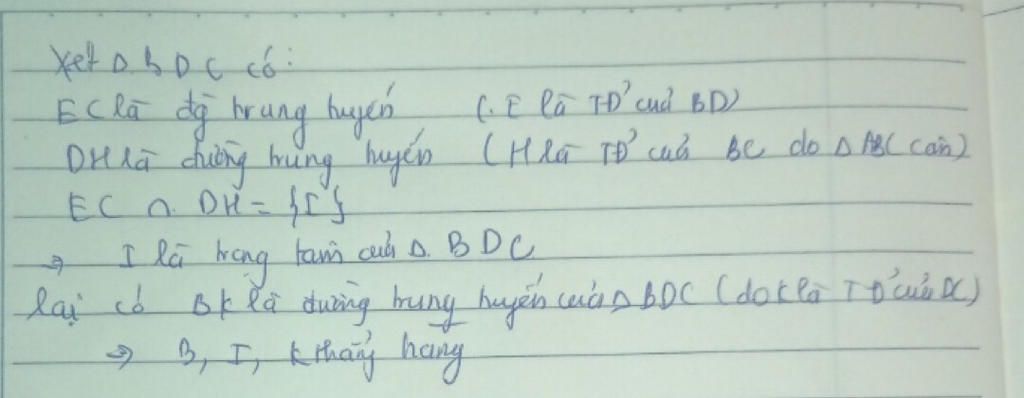 Xét Δ BDC có:
EC là đg trung tuyến (E là TĐ' của BD)
DH là đường trung tuyến (H là TĐ' của BC do Δ ABC cân)
EC ∩ DH = {I}
⇒ I là trọng tâm của Δ BDC
lại có BK là đường trung tuyến của Δ BDC (do K là TĐ' của DC)
⇒ B, I, K thẳng hàng